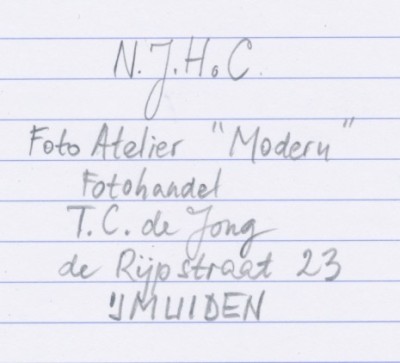 N.J.H.C.
Foto Atelier "Modern"
Fotohandel
T.C. de Jong
de Rijpstraat 23
IJMUIDEN